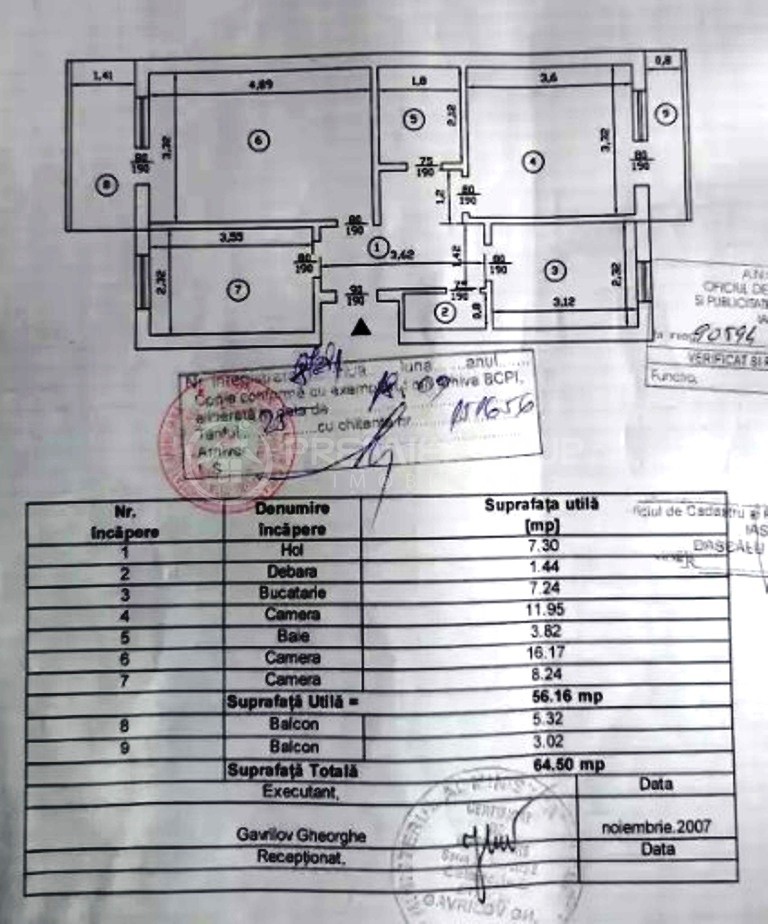 1,41
4,89
1,8
3,6
0,8
3,32
6
5
2,12
4
3,32
9
8
80
190
75
190
80
190
80
190
1,2
80
190
3,55
1
3,62
1,42
2,32
7
80
190
80
190
3
2,32
90
190
190
2
0,8
3,12
OFICIUL DE
SI PUBLICITATE
IA
90594
VERIFICAT SI
Functia,
Nr. inregistrat luna anul
Copie conformă cu exemplarul din arhiva BCPI,
eliberată în data de 18. 09
Tariful 25 cu chitanta nr. 151656
Arhivar
L.S.
PREMIER GROUP
IMOBILIARE
Nr. încăpere Denumire încăpere Suprafaţa utilă [mp]
1 Hol 7.30
2 Debara 1.44
3 Bucatarie 7.24
4 Camera 11.95
5 Baie 3.82
6 Camera 16.17
7 Camera 8.24
Suprafaţă Utilă = 56.16 mp
8 Balcon 5.32
9 Balcon 3.02
Suprafaţă Totală 64.50 mp
Executant, Data
Gavrilov Gheorghe noiembrie.2007
Recepţionat, Data
Oficiul de Cadastru
IAS
DASCĂLU
CERTIFICAT
GAVRILOV GH.